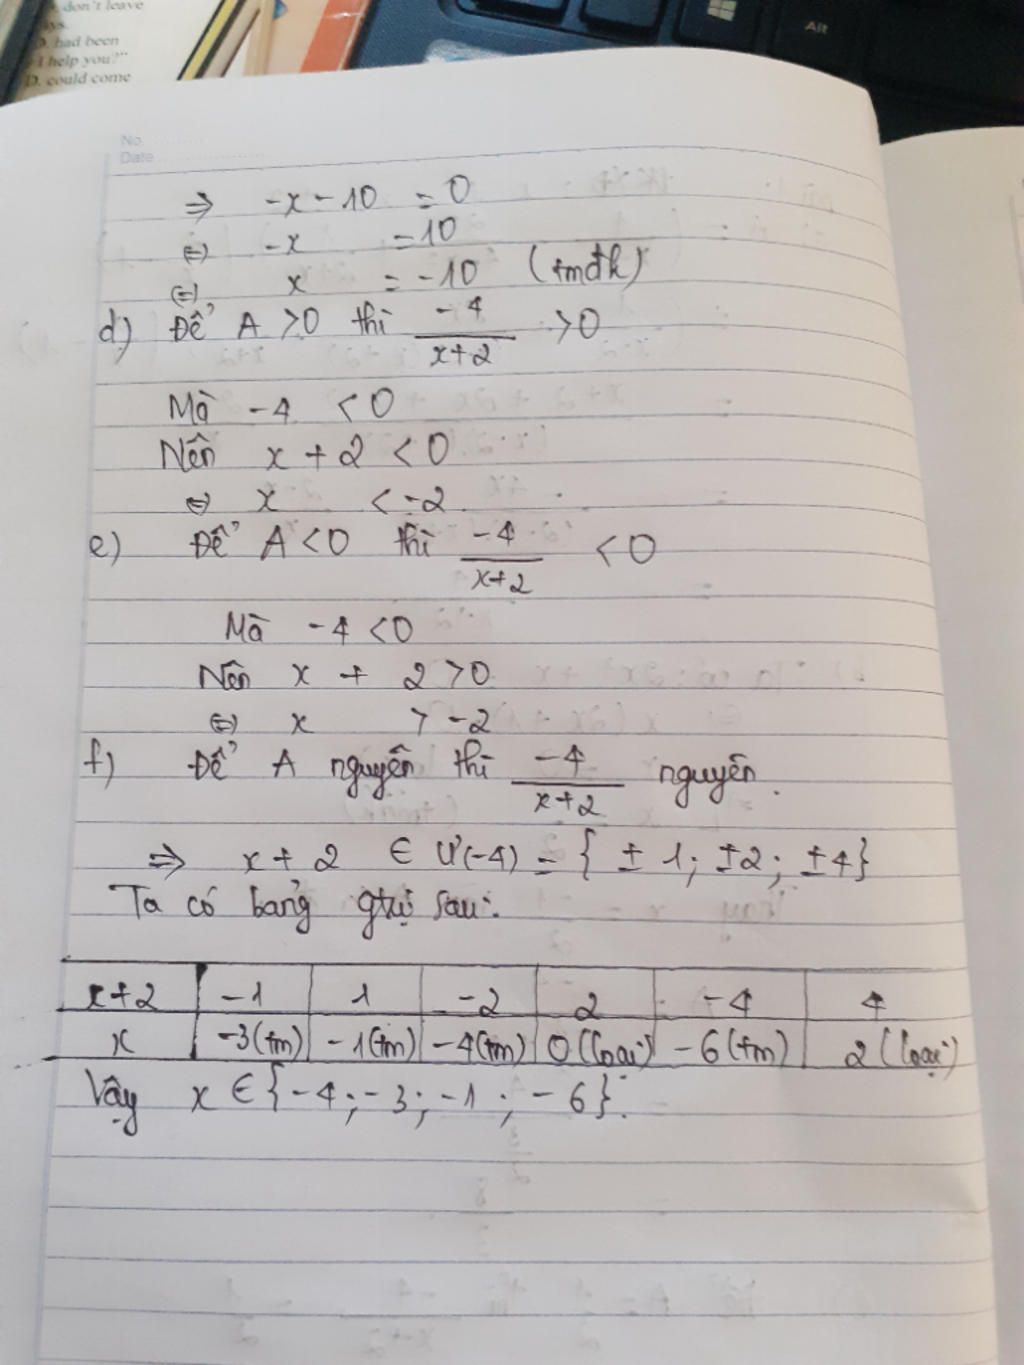 don't leave
ays.
D. had been
I help you?"
D. could come
Alt
No
Date
=> -x - 10 = 0
(=) -x = 10
(=) x = -10 (tmđk)
d) Để A > 0 thì -4/(x+2) > 0
Mà -4 < 0
Nên x + 2 < 0
(=) x < -2
e) Để A < 0 thì -4/(x+2) < 0
Mà -4 < 0
Nên x + 2 > 0
(=) x > -2
f) Để A nguyên thì -4/(x+2) nguyên.
=> x + 2 ∈ Ư(-4) = { ± 1; ±2; ±4}
Ta có bảng gtrị sau:
x+2 -1 1 -2 2 -4 4
x -3(tm) -1(tm) -4(tm) 0(loại) -6(tm) 2(loại)
Vậy x ∈ {-4; -3; -1; -6}.